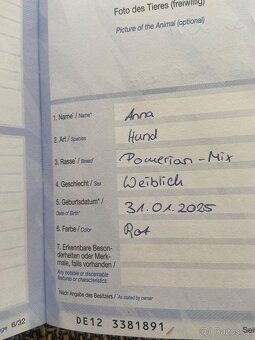 Foto des Tieres (freiwillig)
Picture of the Animal (optional)
1. Name*/ Name* Anna
2. Art / Species Hund
3. Rasse*/ Breed* Pomerian - Mix
4. Geschlecht / Sex Weiblich
5. Geburtsdatum*/ 31.01.2025
Date of Birth*
6. Farbe / Color Rot
7. Erkennbare Beson-
derheiten oder Merk-
male, falls vorhanden /
Any notable or discernable
features or characteristics:
*Nach Angabe des Besitzers / *As stated by owner
6/32
DE12 3381891
Seit